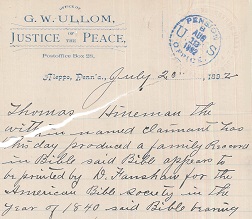 OFFICE OF
G. W. ULLOM,
JUSTICE OF THE PEACE,
Postoffice Box 28,
PENSION OFFICE
U S
AUG
1892
Aleppo, Penn'a., July 20" 1892
Thomas Hineman the
within named Claimant has
this day produced a family Record
in Bible said Bible appears to
be printed by D. Fanshaw for the
American Bible Society in the
Year of 1840 said Bible bearing